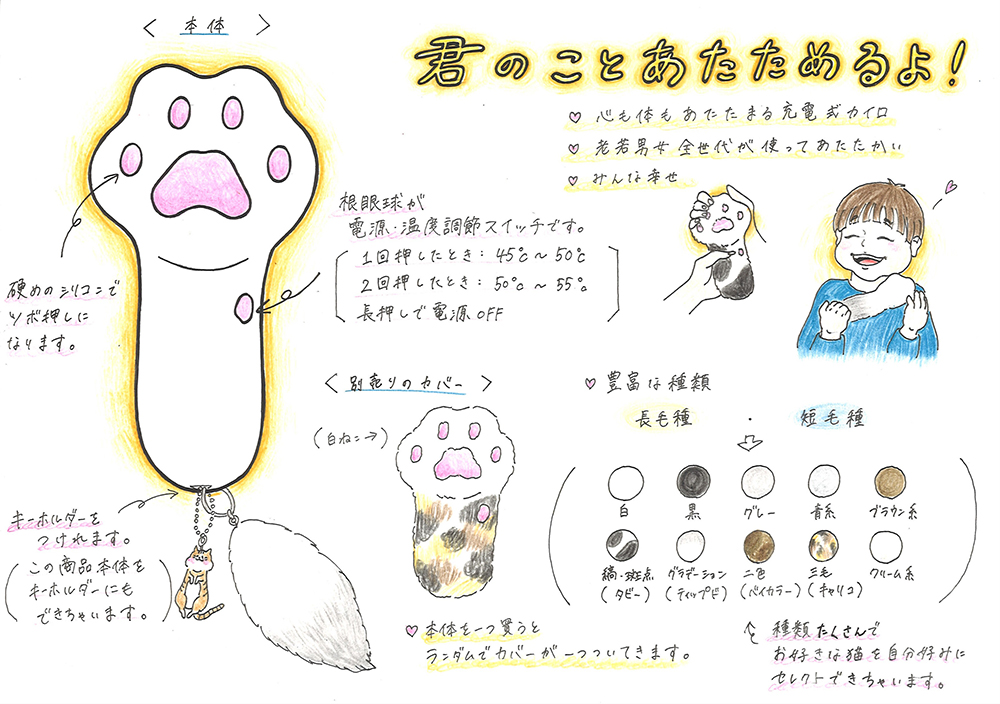 〈 本体 〉
君のことあたためるよ！
♡ 心も体もあたたまる充電式カイロ
♡ 老若男女全世代が使ってあたたかい
♡ みんな幸せ
根眼球が
電源・温度調節スイッチです。
1回押したとき：45℃〜50℃
2回押したとき：50℃〜55℃
長押しで電源OFF
硬めのシリコンで
ツボ押しに
なります。
〈 別売りのカバー 〉
（白ねこ→）
キーホルダーを
つけれます。
（この商品本体を
キーホルダーにも
できちゃいます。）
♡ 本体を一つ買うと
ランダムでカバーが一つついてきます。
♡ 豊富な種類
長毛種 ・ 短毛種
白 黒 グレー 青系 ブラウン系
縞・斑点 グラデーション 二色 三毛 クリーム系
（タビー） （ティップド） （バイカラー） （キャリコ）
種類たくさんで
お好きな猫を自分好みに
セレクトできちゃいます。